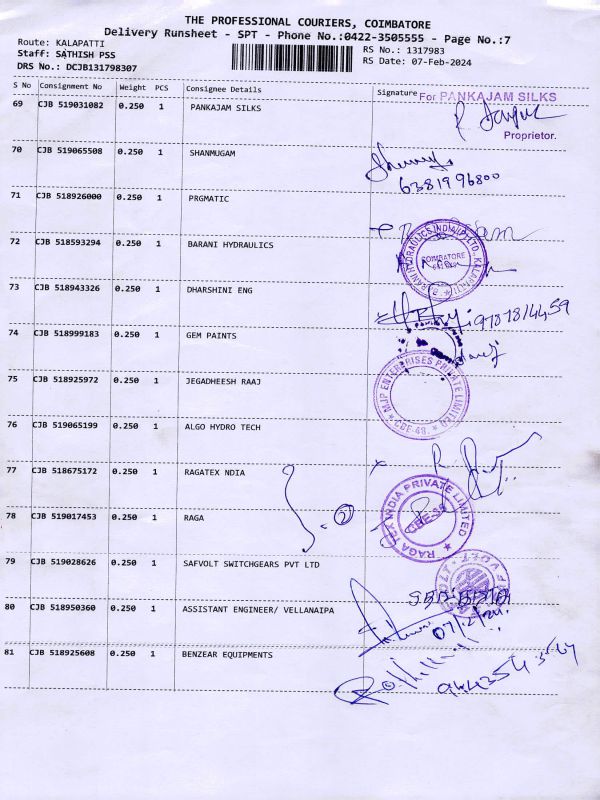 THE PROFESSIONAL COURIERS, COIMBATORE
Delivery Runsheet - SPT - Phone No.:0422-3505555 - Page No.:7
Route: KALAPATTI
Staff: SATHISH PSS
DRS No.: DCJB131798307
RS No.: 1317983
RS Date: 07-Feb-2024
S No Consignment No Weight PCS Consignee Details Signature
For PANKAJAM SILKS
69 CJB 519031082 0.250 1 PANKAJAM SILKS
Proprietor.
70 CJB 519065508 0.250 1 SHANMUGAM
6381996800
71 CJB 518926000 0.250 1 PRGMATIC
72 CJB 518593294 0.250 1 BARANI HYDRAULICS
BARANI HYDRAULICS INDIA (P) LTD. KALAPATTI
COIMBATORE
73 CJB 518943326 0.250 1 DHARSHINI ENG
74 CJB 518999183 0.250 1 GEM PAINTS
75 CJB 518925972 0.250 1 JEGADHEESH RAAJ
MJP ENTERPRISES PRIVATE LIMITED
CBE-48.
76 CJB 519065199 0.250 1 ALGO HYDRO TECH
77 CJB 518675172 0.250 1 RAGATEX NDIA
78 CJB 519017453 0.250 1 RAGA
= 2
RAGA TEX INDIA PRIVATE LIMITED
79 CJB 519028626 0.250 1 SAFVOLT SWITCHGEARS PVT LTD
80 CJB 518950360 0.250 1 ASSISTANT ENGINEER/ VELLANAIPA
07/2/24.
81 CJB 518925608 0.250 1 BENZEAR EQUIPMENTS